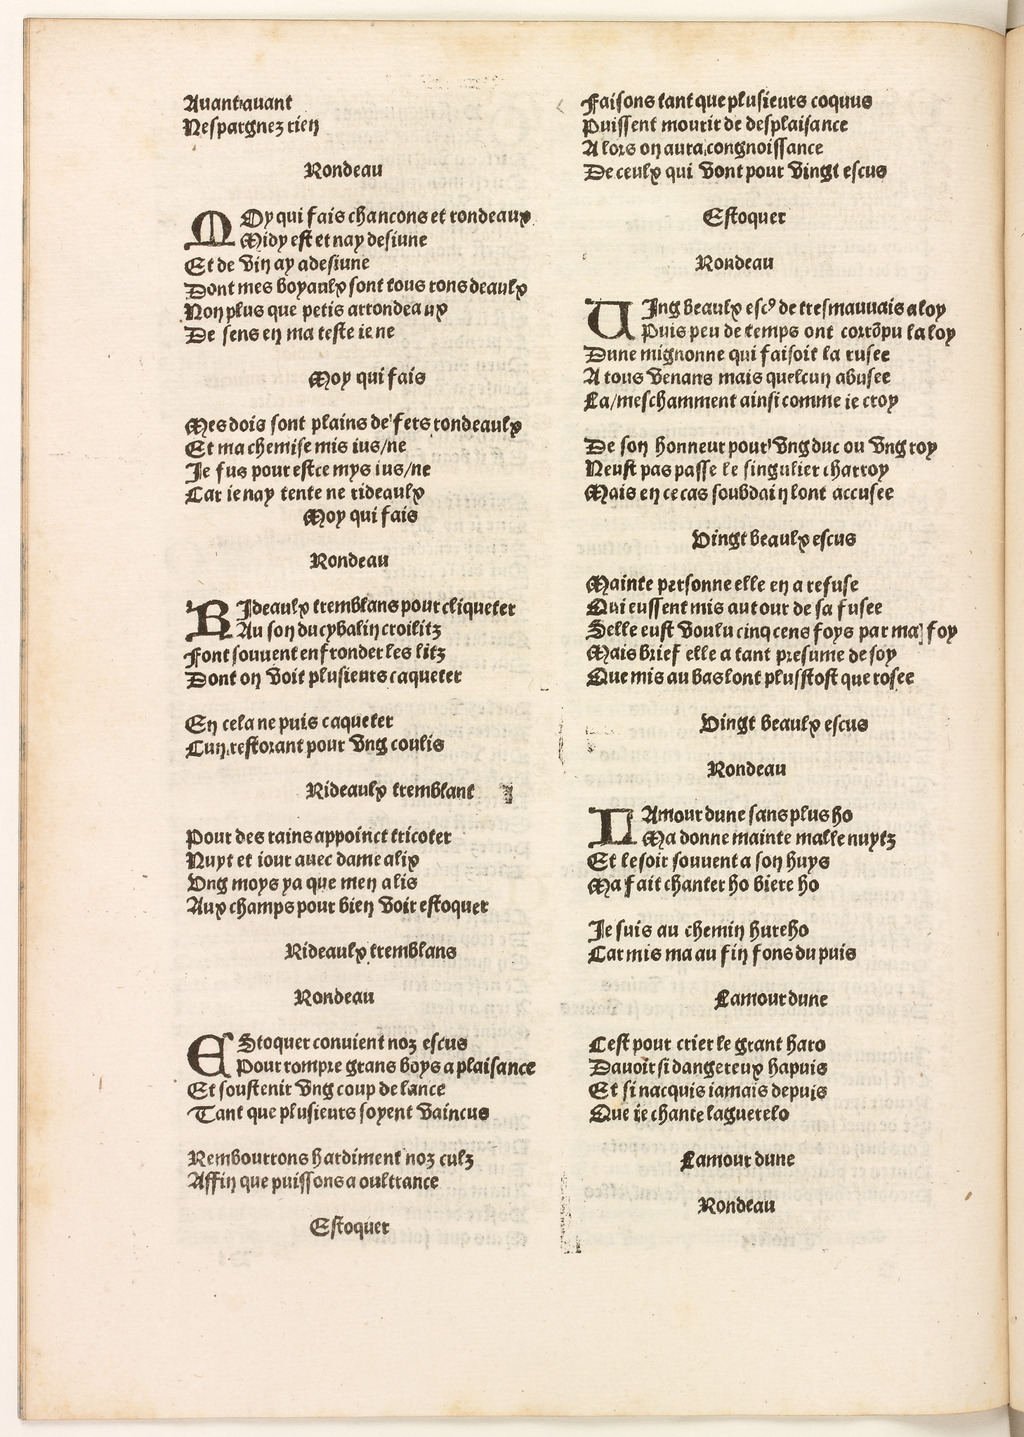 Auant auant
Nespargnez rien
Rondeau
MOy qui fais chancons et rondeaux
Midy est et nay desiune
Et de vin ay adesiune
Dont mes boyaulx sont tous rons deaulx
Non plus que petis arrondeaux
De sens en ma teste ie ne
Moy qui fais
Mes dois sont plains de fers rondeaulx
Et ma chemise mis ius/ne
Je fus pour estce mys ius/ne
Car ie nay tente ne rideaulx
Moy qui fais
Rondeau
RIdeaulx tremblans pour cliqueter
Au son du cybalin croilitz
Font souuent enfronder les litz
Dont on voit plusieurs caqueter
En cela ne puis caqueter
Cun restorant pour vng coulis
Rideaulx tremblant
Pour des rains appoinct tricoter
Nuyt et iour auec dame alix
Vng moys ya que men alis
Aux champs pour bien voir estoquer
Rideaulx tremblans
Rondeau
EStoquer conuient noz escus
Pour rompre grans boys a plaisance
Et soustenir vng coup de lance
Tant que plusieurs soyent vaincus
Rembourrons hardiment noz culz
Affin que puissons a oultrance
Estoquer
Faisons tant que plusieurs coquus
Puissent mourir de desplaisance
Alors on aura congnoissance
De ceulx qui vont pour vingt escus
Estoquer
Rondeau
UIng beaulx escꝰ de tresmauuais aloy
Puis peu de temps ont corrõpu la loy
Dune mignonne qui faisoit la rusee
A tous venans mais quelcun abusee
La/meschamment ainsi comme ie croy
De son honneur pour vng duc ou vng roy
Neust pas passe le singulier charroy
Mais en ce cas soubdain lont accusee
Vingt beaulx escus
Mainte personne elle en a refuse
Qui eussent mis autour de sa fusee
Selle eust voulu cinq cens foys par ma foy
Mais brief elle a tant presume de soy
Que mis au bas lont plusstost que rosee
Vingt beaulx escus
Rondeau
LAmour dune sans plus ho
Ma donne mainte malle nuytz
Et le soir souuent a son huys
Ma fait chanter ho biere ho
Je suis au chemin hureho
Car mis ma au fin fons du puis
Lamour dune
Cest pour crier le grant haro
Dauoir si dangereux hapuis
Et si nacquis iamais depuis
Que ie chante laguerelo
Lamour dune
Rondeau